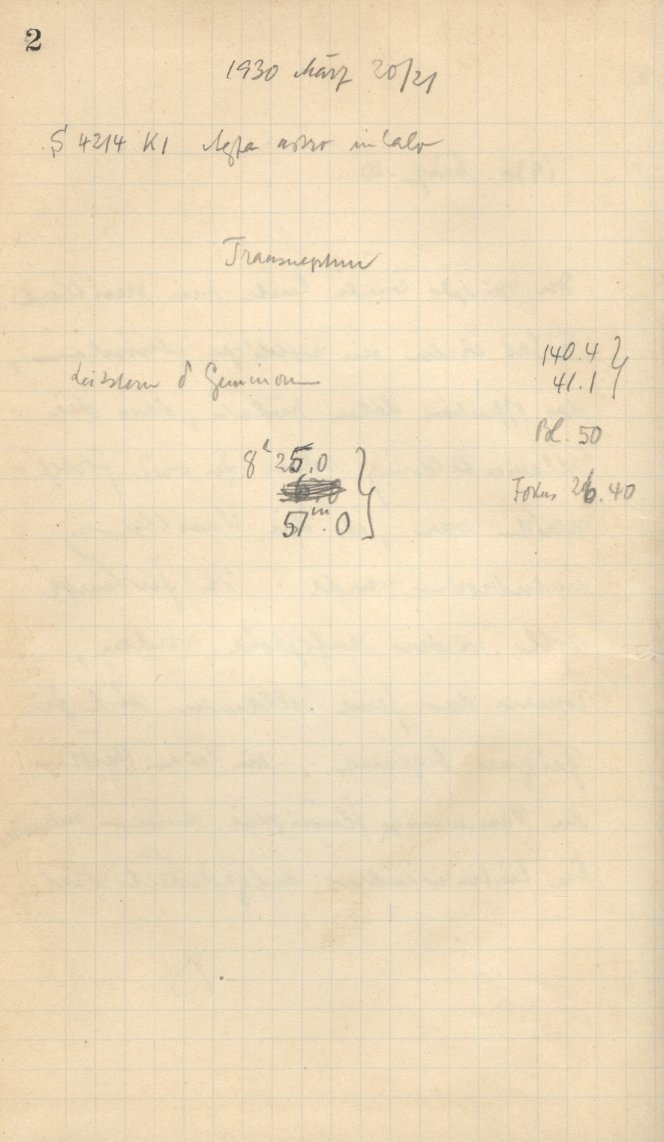 2
1930 März 20/21
S 4214 K1 Agfa astro
Transneptun
140.4
Leitstern δ Geminorum
41.1
Bl. 50
8ʰ 25.0
Fokus 26.40
57ᵐ.0